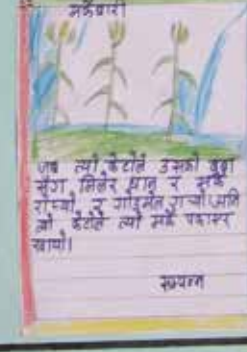 मकैबारी
जब त्यो केटोले उसको बुबा
सँग मिलेर धान र मकै
रोप्यो र गोडमेल गर्यो अनि
त्यो केटोले त्यो मकै पकाएर
खायो।